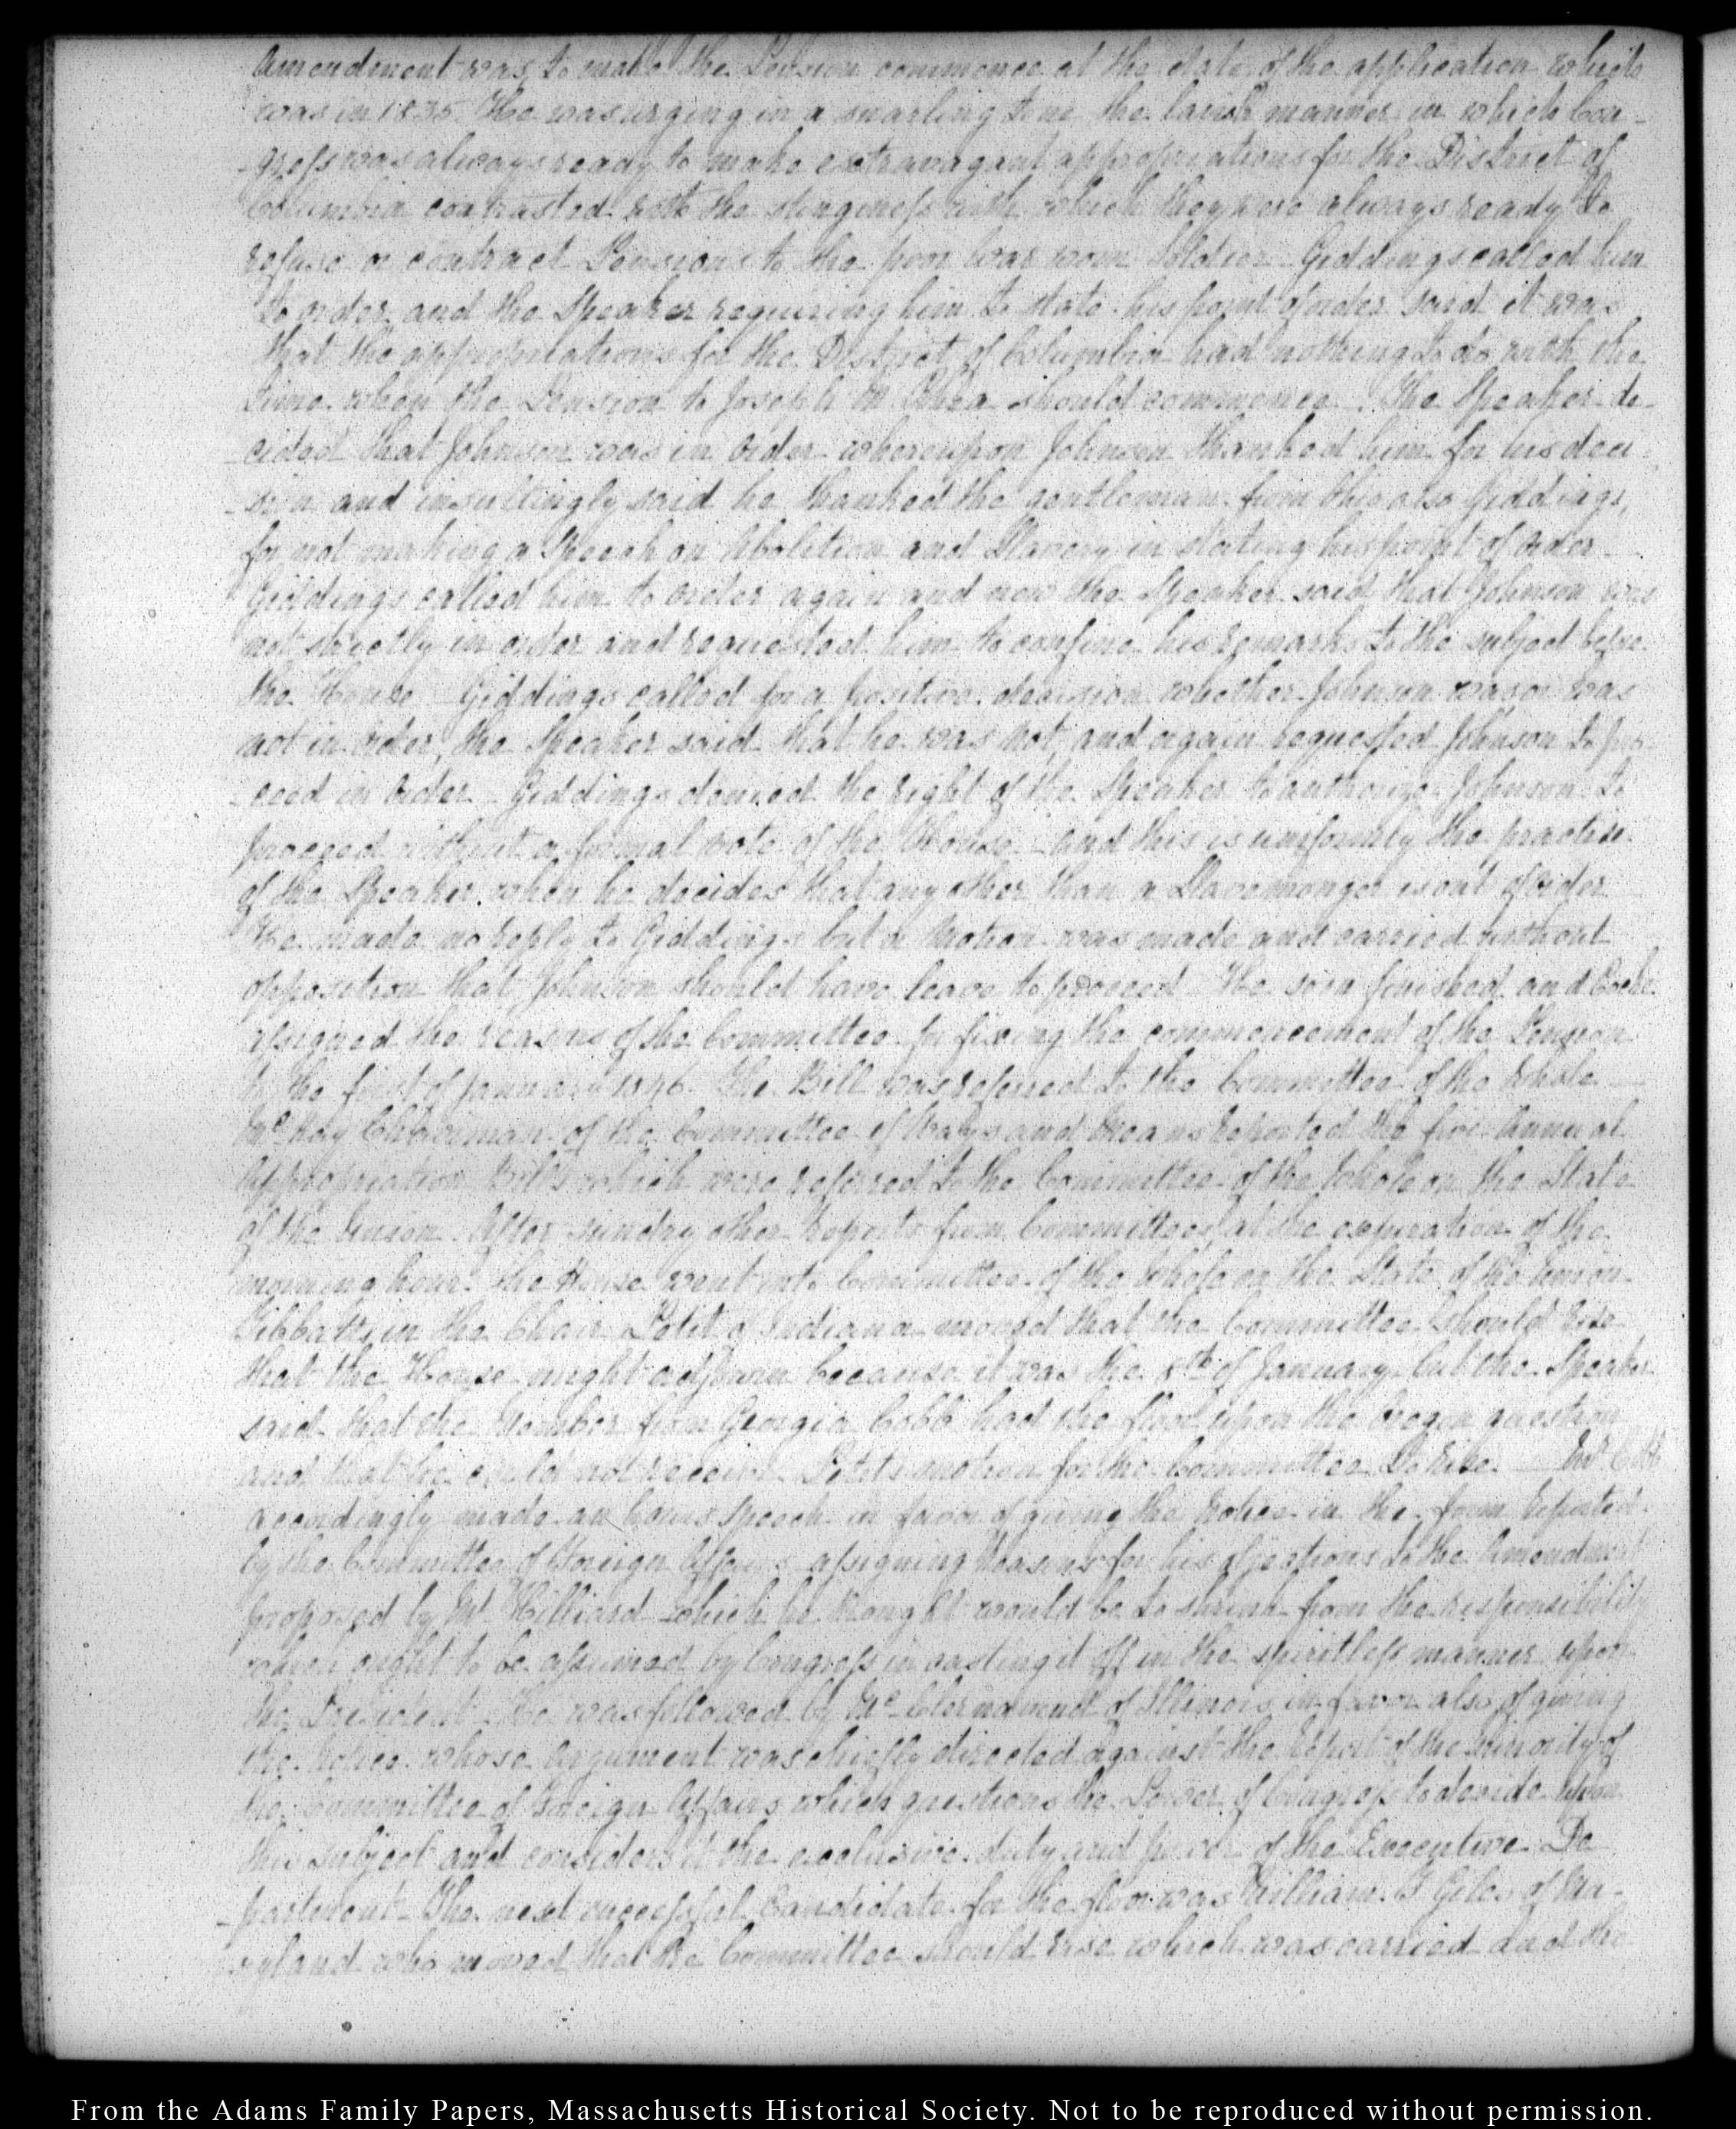 Amendment was, to make the Pension commence at the date of the application which
was in 1835. He was urging in a snarling tone the lavish manner in which Con-
-gress was always ready to make extravagant appropriations for the District of
Columbia contrasted with the stinginess with which they were always ready to
refuse or contract Pensions to the poor war worn Soldier. Giddings called him
to order, and the Speaker requiring him to state his point of order said it was
that the appropriations for the District of Columbia had nothing to do with the
time when the Pension to Joseph M Rhea should commence. The Speaker de-
-cided that Johnson was in order whereupon Johnson thanked him for his deci-
-sion and insultingly said he thanked the gentleman from Ohio also Giddings,
for not making a Speech on Abolition and Slavery in stating his point of order.
Giddings called him to order again and now the Speaker said that Johnson was
not strictly in order and requested him to confine his remarks to the subject before
the House Giddings called for a positive decision whether Johnson was or was
not in Order, the Speaker said that he was not, and again requested Johnson to pro-
-ceed in order. Giddings denied the right of the Speaker to authorize Johnson to
proceed without a formal vote of the House and this is uniformly the practise
of the Speaker when he decides that any other than a Slavemonger is out of order
He made no reply to Giddings but a motion was made and carried without
opposition that Johnson should have leave to proceed He soon finished and Cocke
assigned the reasons of the Committee for fixing the commencement of the Pension
to the first of January 1846. The Bill was referred to the Committee of the Whole
McKay Chairman of the Committee of Ways and Means reported the five Annual
Appropriation Bills which were referred to the Committee of the Whole on the State
of the Union. After sundry other reports from Committees, at the expiration of the
morning hour the House went into Committee of the Whole on the State of the Union
Tibbatts in the Chair Petit of Indiana moved that the Committee should rise
that the House might adjourn because it was the 8th of January but the Speaker
said that the Member from Georgia Cobb had the floor upon the Oregon question
and that he could not receive Petit's motion for the Committee to rise. Mr Cobb
accordingly made an hours speech in favor of giving the Notice in the form reported
by the Committee of Foreign Affairs assigning reasons for his objections to the Amendment
proposed by Mr Hilliard which he thought would be to shrink from the responsibility
which ought to be assumed by Congress in casting it off in the spiritless manner upon
the President He was followed by McClernand of Illinois in favor also of giving
the Notice whose argument was chiefly directed against the report of the minority of
the Committee of Foreign Affairs which questions the Power of Congress to decide upon
this subject and considers it the exclusive duty and power of the Executive De
-partment The next successful Candidate for the floor was William F Giles of Ma-
-ryland who moved that the Committee should rise which was carried and the
From the Adams Family Papers, Massachusetts Historical Society. Not to be reproduced without permission.